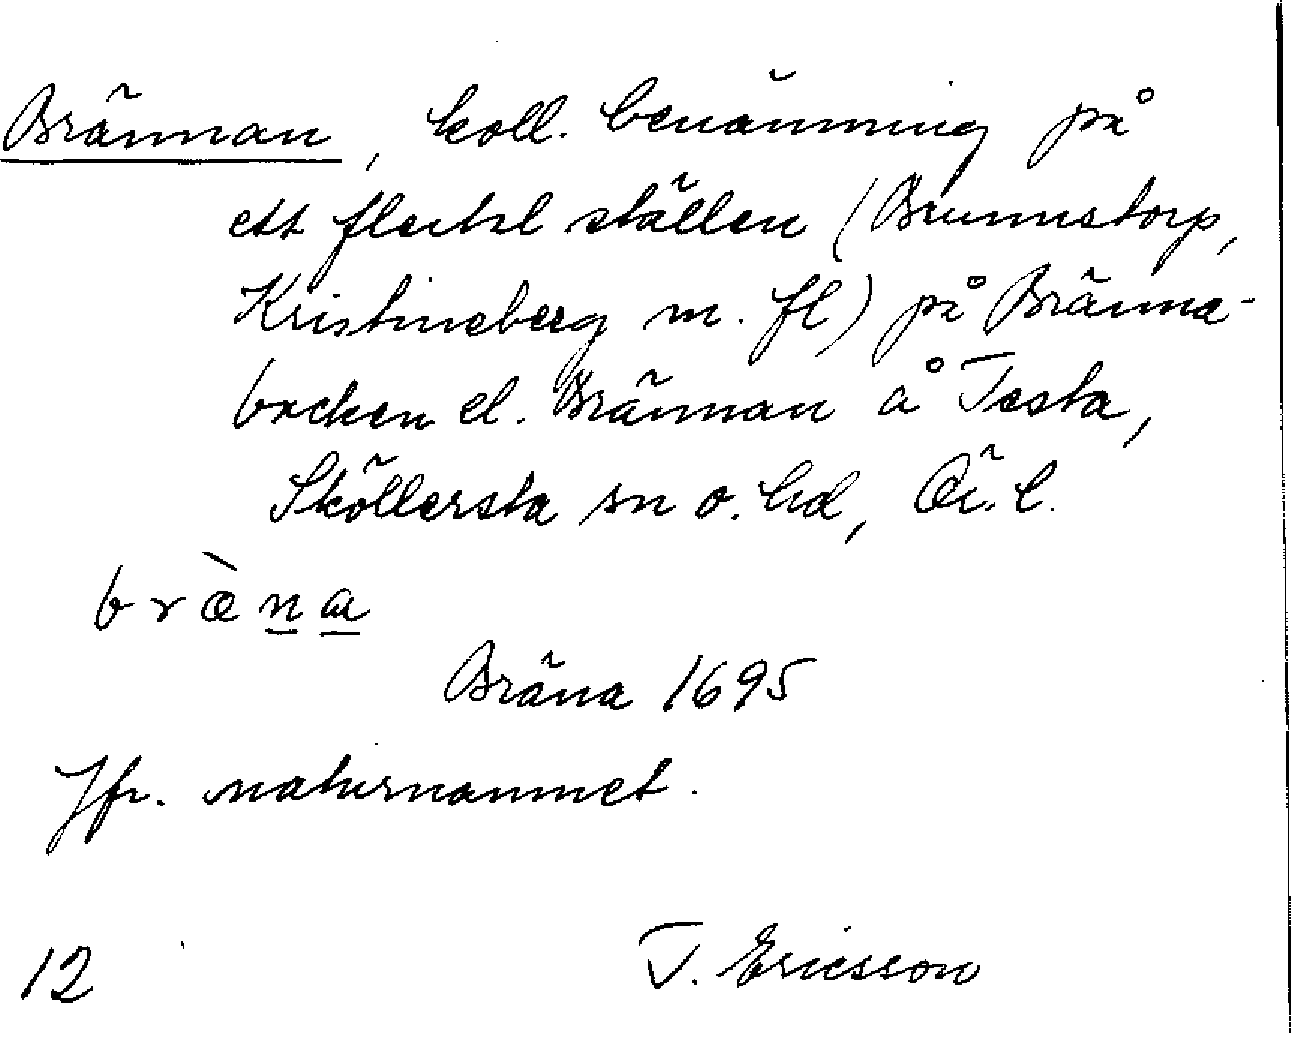 Brännan, koll. benämning på
ett flertal ställen (Brunnstorp,
Kristineberg m. fl) på Bränne-
backen el. Brännan å Testa,
Sköllersta sn o. hd, Ör. l.
bræ̀na
Bräna 1695
Jfr. naturnamnet.
12 T. Ericsson